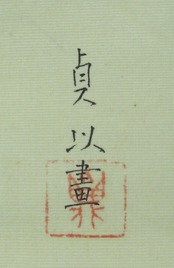 貞以畫